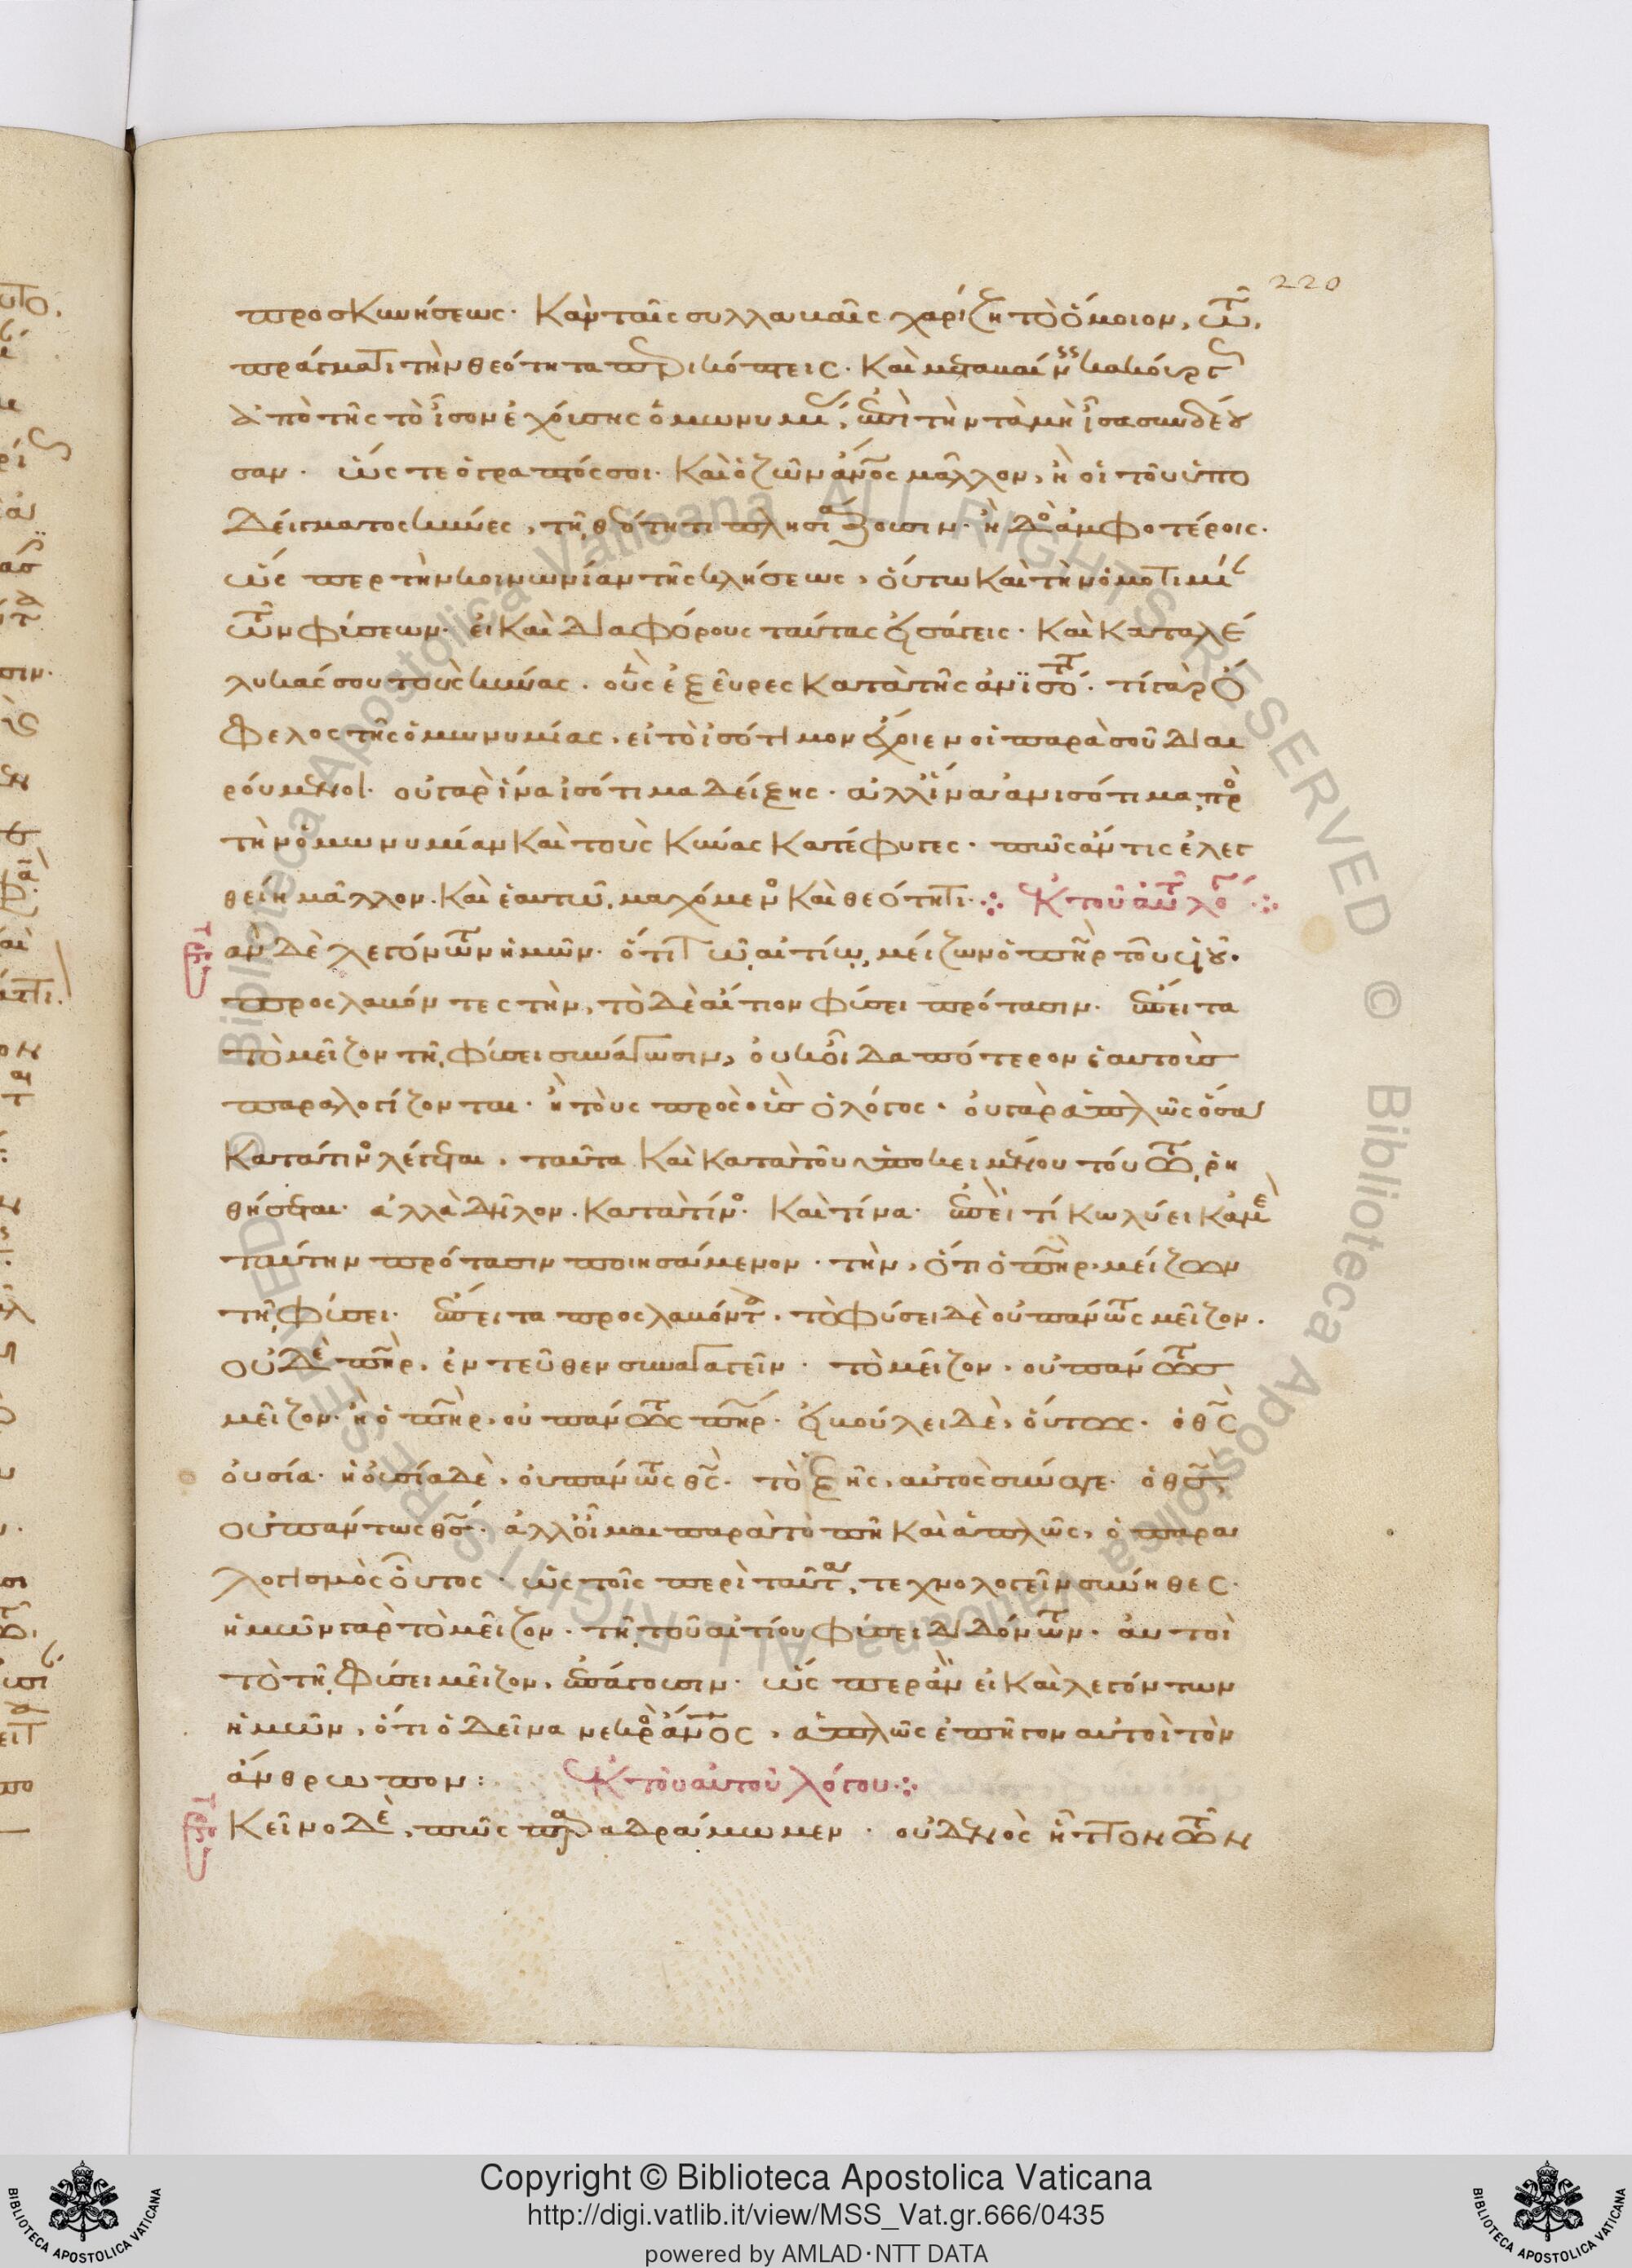 220
προσκυνήσεως· κἂν ταῖς συλλαβαῖς χαρίζη τὸ ὅμοιον, τῶ
πράγματι τὴν θεότητα περικόπτεις· καὶ μεταβαίνεις κακούργως
ἀπὸ τῆς τὸ ἴσον ἐχούσης ὁμωνυμίας, ἐπὶ τὴν τὰ μὴ ἴσα συνδέου
σαν· ὥστε ὁ γραπτός σοι· καὶ ὁ ζῶν ἄνος μᾶλλον, ἢ οἱ τοῦ ὑπο
δείγματος κύνες, τῆ θεότητι πλησιάζουσιν· ἢ δὸς ἀμφοτέροις·
ὥσπερ τὴν κοινωνίαν τῆς κλήσεως, οὕτω καὶ τὴν ὁμοτιμίαν
τῶν φύσεων· εἰ καὶ διαφόρους ταύτας εἰσάγεις· καὶ καταλέ
λυκάς σου τοὺς κύνας· οὓς ἐξεῦρες κατὰ τῆς ἀνισότητος· τί γὰρ ὄ
φελος τῆς ὁμωνυμίας, εἰ τὸ ἰσότιμον ἔχοιεν οἱ παρὰ σοῦ διαι
ρούμενοι· οὐ γὰρ ἵνα ἰσότιμα δείξης· ἀλλ' ἵνα ἀνισότιμα, πρὸς
τὴν ὁμωνυμίαν καὶ τοὺς κύνας κατέφυγες· πῶς ἄν τις ἐλεγ
χθείη μᾶλλον· καὶ ἑαυτῶ, μαχόμενος καὶ θεότητι· ἐκ τοῦ αὐτοῦ λόγου
ἂν δὲ λεγόντων ἡμῶν· ὅτι τῶ αἰτίω, μείζων ὁ πηρ τοῦ υἱοῦ·
προσλαβόντες τὴν, τὸ δὲ αἴτιον φύσει πρότασιν· ἔπειτα
τὸ μεῖζον τῆ φύσει συνάγωσιν, οὐκ οἶδα πότερον ἑαυτοὺς
παραλογίζονται· ἢ τοὺς πρὸς οὓς ὁ λόγος· οὐ γὰρ ἁπλῶς ὅσα
κατά τινος λέγεται, ταῦτα καὶ κατὰ τοῦ ὑποκειμένου τούτω ῥη
θήσεται· ἀλλὰ δῆλον· κατὰ τίνος· καὶ τίνα· ἐπεὶ τί κωλύει κἀμὲ
ταύτην πρότασιν ποιησάμενον· τὴν, ὅτι ὁ πηρ μείζων
τῆ φύσει· ἔπειτα προσλαβόντα· τὸ φύσει δὲ οὐ πάντως μεῖζον·
οὐδὲ πηρ, ἐντεῦθεν συναγαγεῖν· τὸ μεῖζον, οὐ πάντως
μεῖζον· ἢ ὁ πηρ, οὐ πάντως πηρ· εἰ βούλει δὲ, οὕτως· ὁ θς
οὐσία· ἡ οὐσία δὲ, οὐ πάντως θς· τὸ ἑξῆς, αὐτὸς σύναγε· ὁ θς,
οὐ πάντως θς· ἀλλ' οἶμαι παρὰ τὸ πῆ καὶ ἁπλῶς, ὁ παρα
λογισμὸς οὗτος· ὡς τοῖς περὶ ταῦτα, τεχνολογεῖν σύνηθες·
ἡμῶν γὰρ τὸ μεῖζον· τῆ τοῦ αἰτίου φύσει διδόντων· αὐτοὶ
τὸ τῆ φύσει μεῖζον, ἐπάγουσιν· ὥσπερ ἂν εἰ καὶ λεγόντων
ἡμῶν, ὅτι ὁ δεῖνα νεκρὸς ἄνος, ἁπλῶς ἐπῆγον αὐτοὶ τὸν
ἄνθρωπον: ἐκ τοῦ αὐτοῦ λόγου
Κεῖνο δὲ, πῶς παραδράμωμεν· οὐδενὸς ἧττον τῶν
Copyright © Biblioteca Apostolica Vaticana
http://digi.vatlib.it/view/MSS_Vat.gr.666/0435
powered by AMLAD·NTT DATA